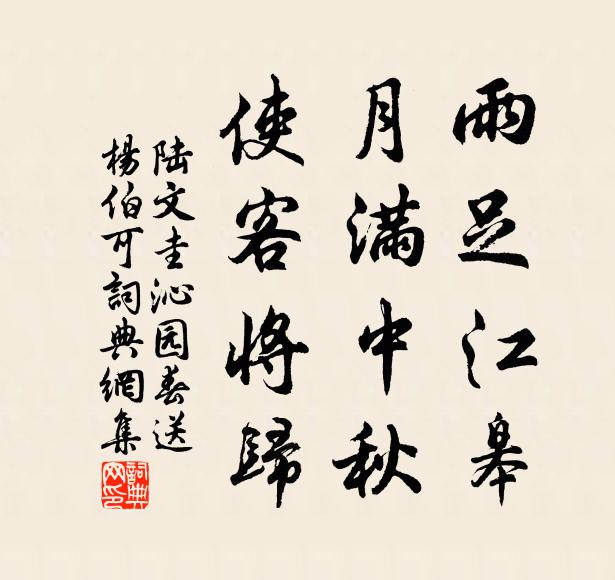 雨足江皋
月满中秋
使客将歸
陆文圭沁园春送
楊伯可詞典網集
詞典网印